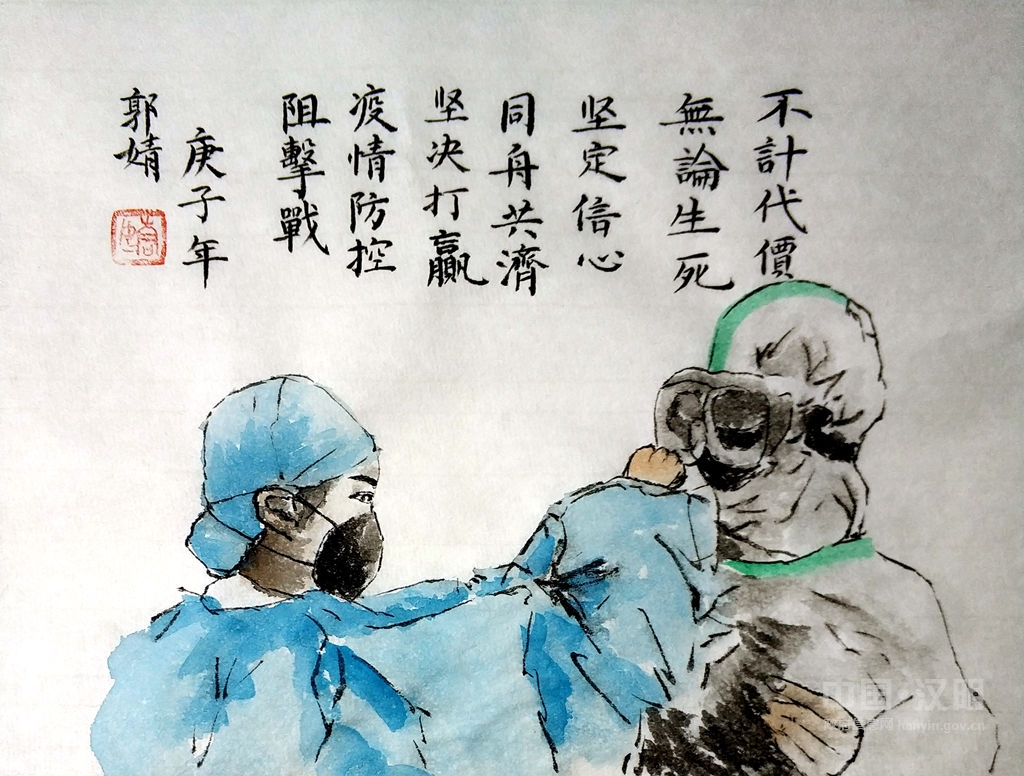 不計代價
無論生死
坚定信心
同舟共濟
坚决打贏
疫情防控
阻擊戰
庚子年
郭婧
hanyin.gov.cn